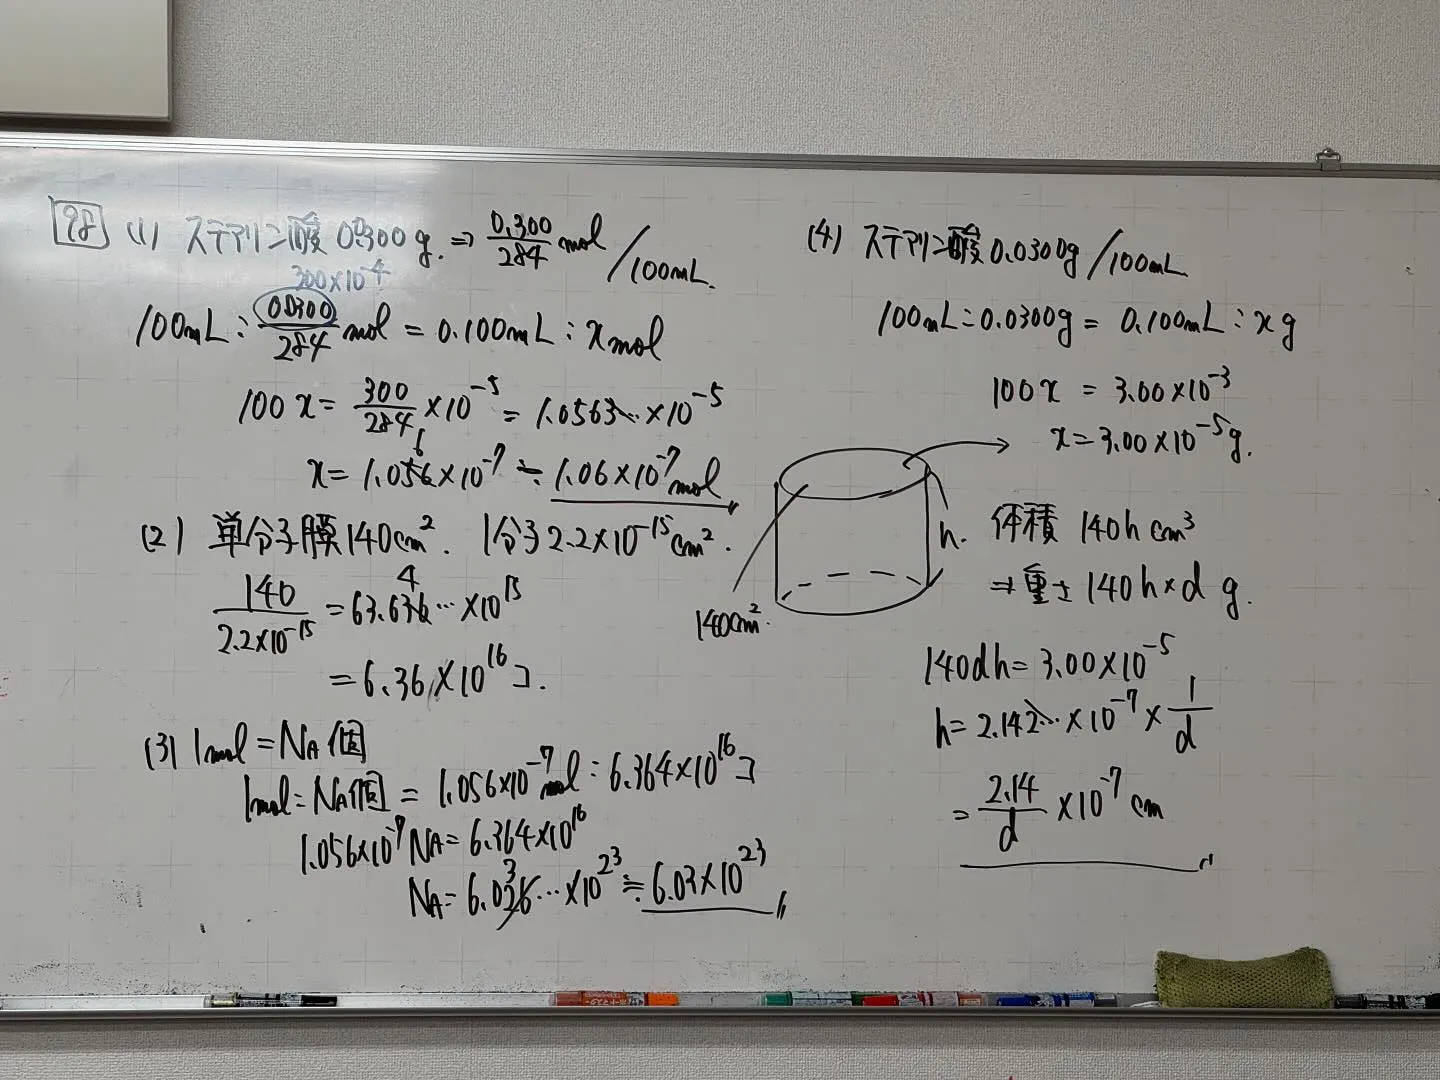 98 (1) ステアリン酸 0.0300g. ⇒ 0.300/284 mol /100mL.
300×10⁻⁴
100mL : 0.0300/284 mol = 0.100mL : x mol
100x = 300/284 × 10⁻⁵ = 1.0563… ×10⁻⁵
x = 1.056×10⁻⁷ ≒ 1.06×10⁻⁷ mol
(2) 単分子膜 140cm². 1分子 2.2×10⁻¹⁵cm².
140/2.2×10⁻¹⁵ = 63.636… ×10¹⁵
4
= 6.36×10¹⁶コ.
(3) 1mol = NA個
1mol : NA個 = 1.056×10⁻⁷mol : 6.364×10¹⁶コ
1.056×10⁻⁷NA = 6.364×10¹⁶
NA = 6.026… ×10²³ ≒ 6.03×10²³
3
(4) ステアリン酸 0.0300g/100mL
100mL : 0.0300g = 0.100mL : x g
100x = 3.00×10⁻³
x = 3.00×10⁻⁵g.
h.
140cm².
体積 140h cm³
⇒ 重さ 140h×d g.
140dh = 3.00×10⁻⁵
h = 2.142… ×10⁻⁷ × 1/d
= 2.14/d ×10⁻⁷ cm